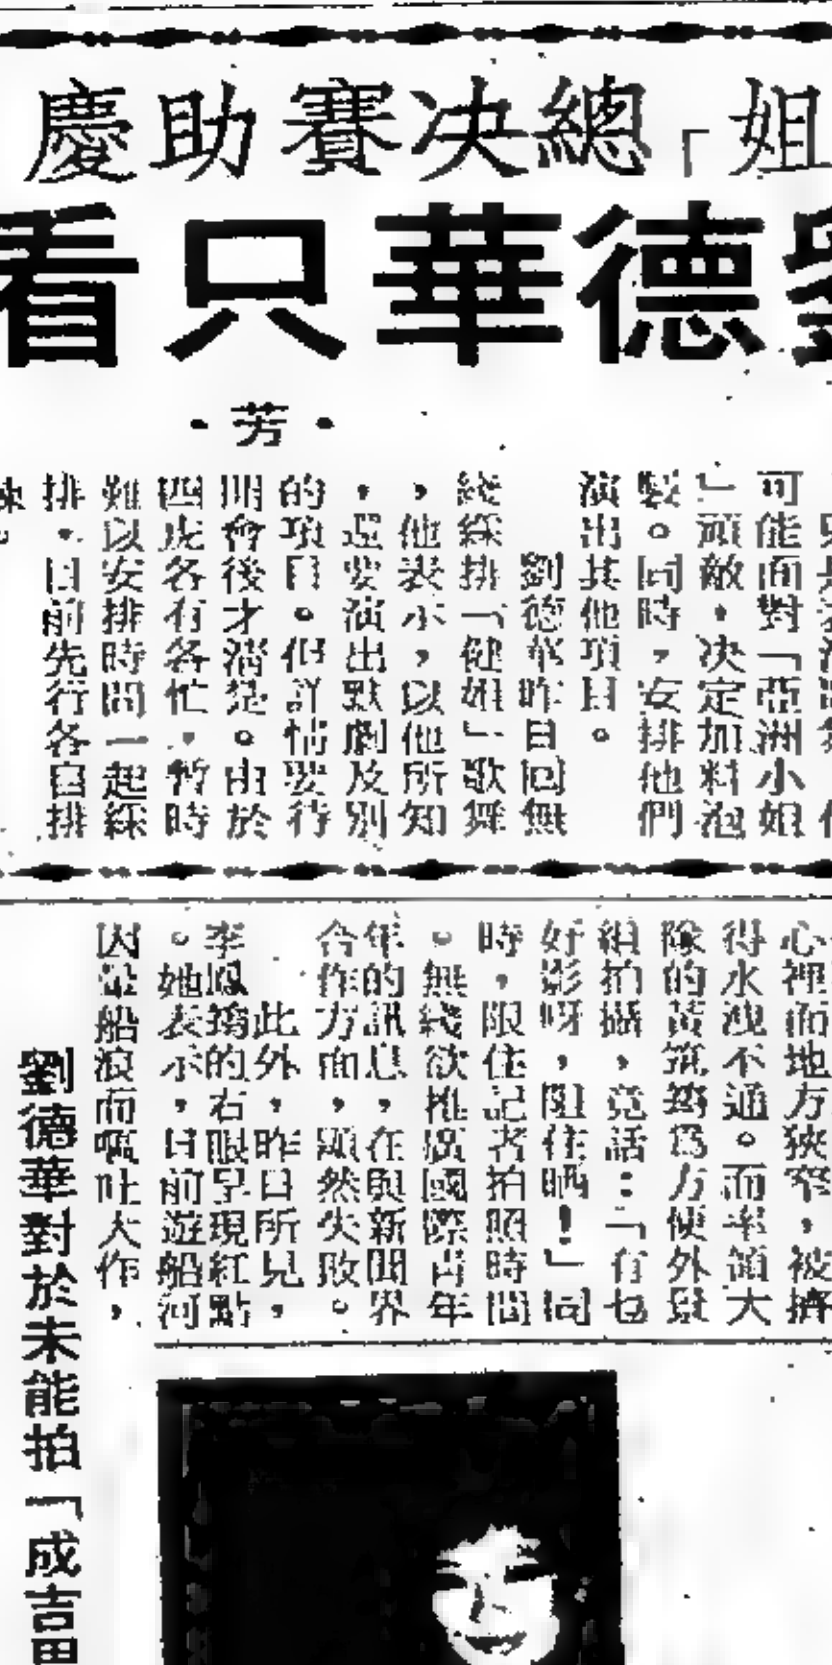 姐「總决賽助慶
德華只看
・芳・
可能面對「亞洲小姐
」頑敵,決定加料泡
製。同時,安排他們
演出其他項目。
劉德華昨日回無
綫綵排「健姐」歌舞
,他表示,以他所知
,還要演出默劇及別
的項目。但詳情要待
開會後才清楚。由於
四虎各有各忙,暫時
難以安排時間一起綵
排,日前先行各自排
心裡面地方狹窄,被擠
得水洩不通。而率領大
隊的黃筑筠爲方便外景
組拍攝,竟話:「有乜
好影呀,阻住晒!」同
時,限住記者拍照時間
。無綫欲推廣國際青年
年的訊息,在與新聞界
合作方面,顯然失敗。
此外,昨日所見,
李鳳 的右眼呈現紅點
。她表示,日前遊船河
因暈船浪而嘔吐大作,
劉德華對於未能拍「成吉